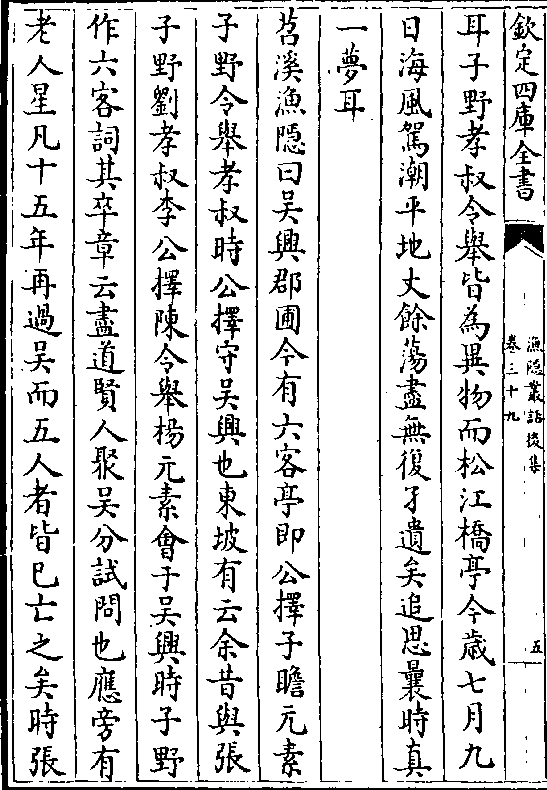 欽定四庫全書
漁隱叢話後集
卷三十九
五
耳子野孝叔令舉皆為異物而松江橋亭今歳七月九
日海風駕潮平地丈餘蕩盡無復孑遺矣追思曩時真
一夢耳
苕溪漁隱曰吳興郡圃今有六客亭即公擇子瞻元素
子野令舉孝叔時公擇守吳興也東坡有云余昔與張
子野劉孝叔李公擇陳令舉楊元素會于吳興時子野
作六客詞其卒章云盡道賢人聚吳分試問也應旁有
老人星凡十五年再過吳而五人者皆已亡之矣時張